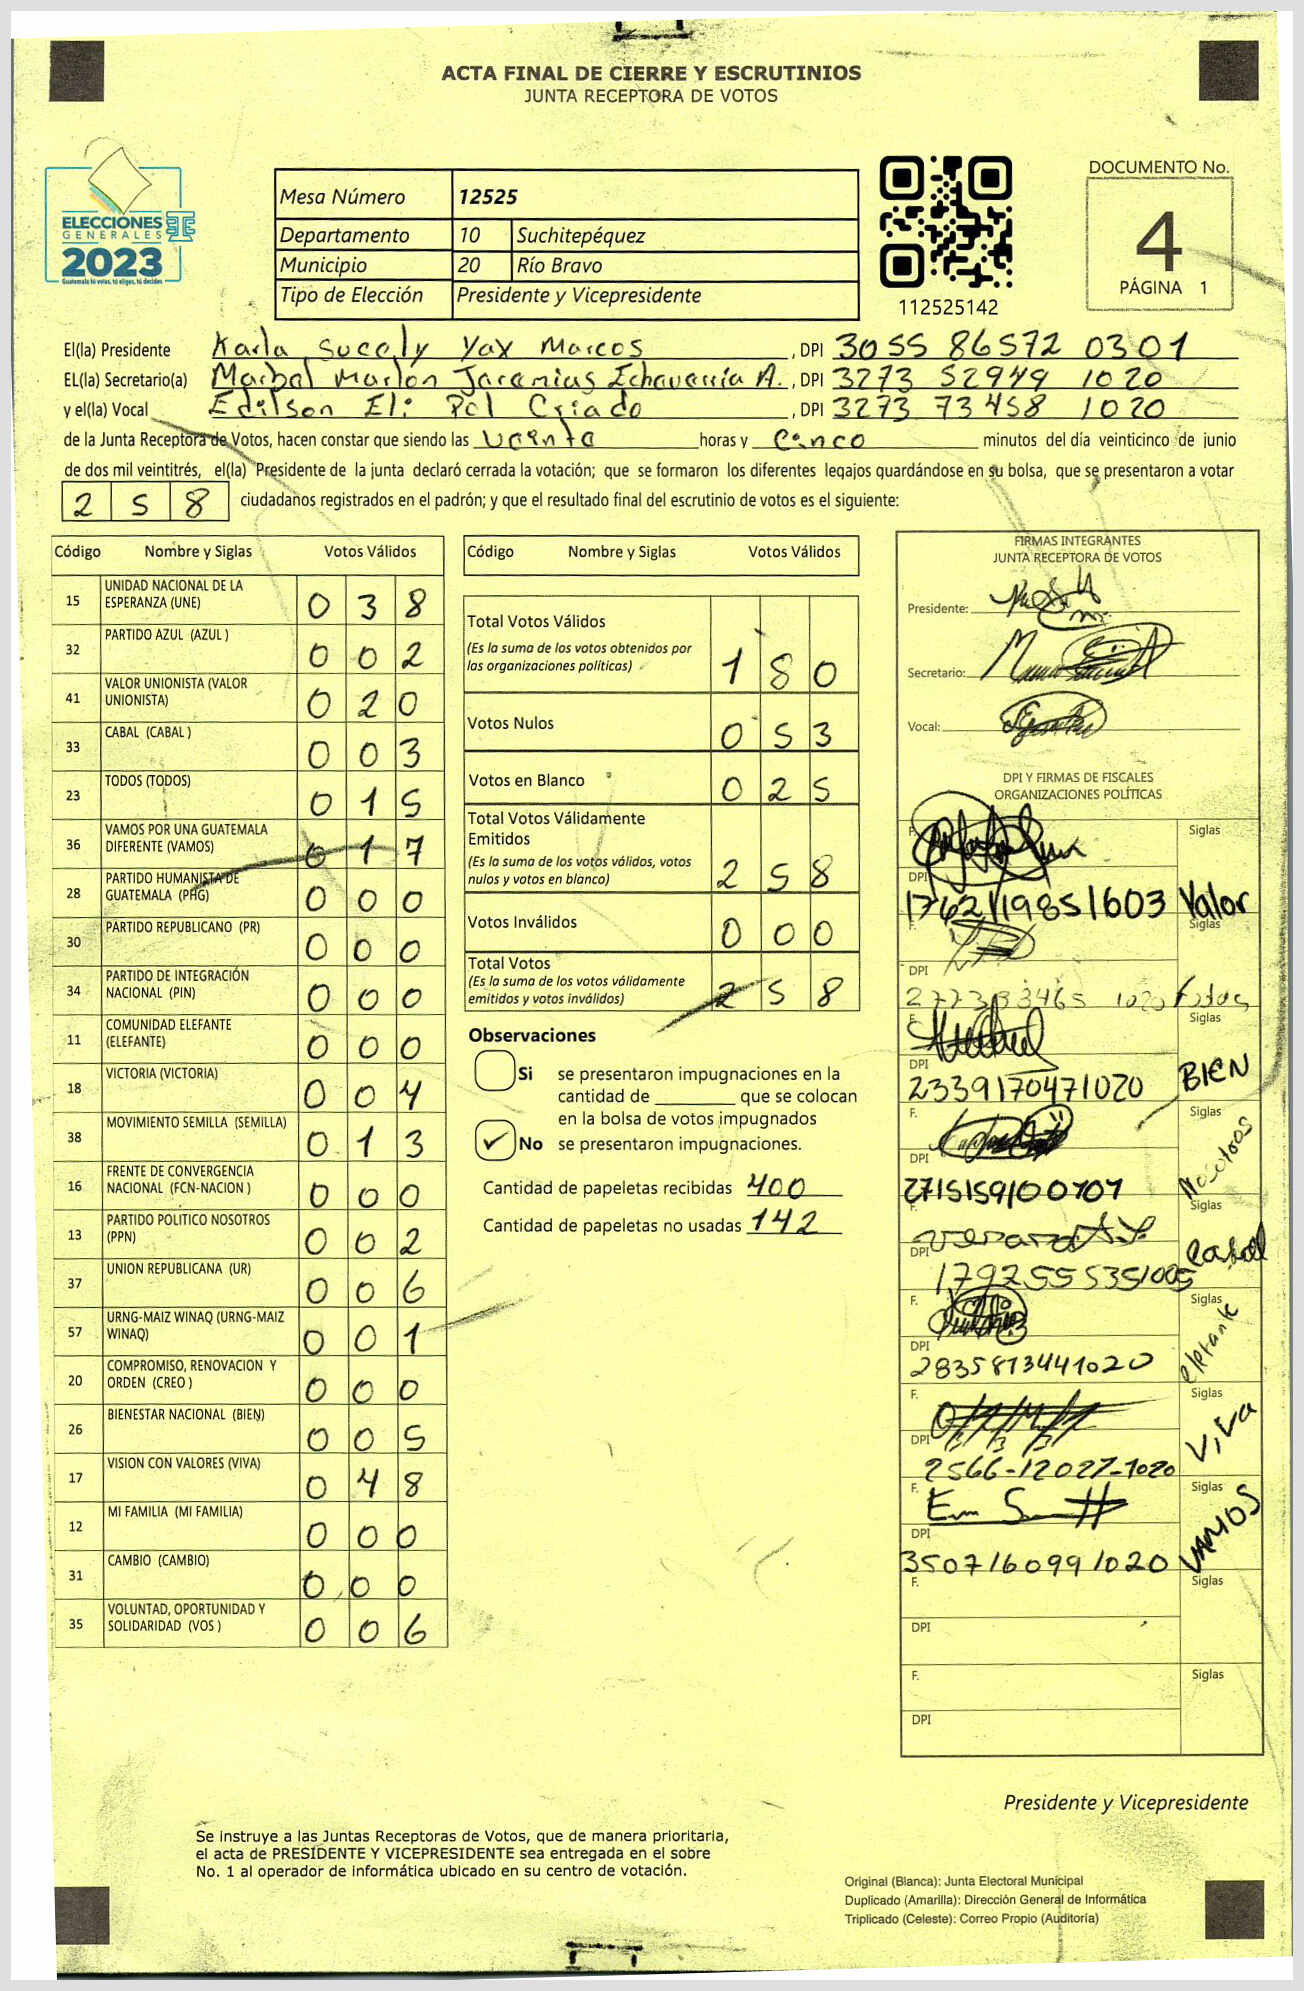 ACTA FINAL DE CIERRE Y ESCRUTINIOS
JUNTA RECEPTORA DE VOTOS
ELECCIONES
GENERALES
2023
Guatemala tú votas, tú eliges, tú decides
Mesa Número 12525
Departamento 10 Suchitepéquez
Municipio 20 Río Bravo
Tipo de Elección Presidente y Vicepresidente
112525142
DOCUMENTO No.
4
PÁGINA 1
El(la) Presidente Karla Sucely Yax Marcos, DPI 3055 86572 0301
EL(la) Secretario(a) Marlon Echavarría A., DPI 3273 52949 1020
y el(la) Vocal Edilson Eli Criado, DPI 3273 73458 1020
de la Junta Receptora de Votos, hacen constar que siendo las Veinte horas y Cinco minutos del día veinticinco de junio
de dos mil veintitrés, el(la) Presidente de la junta declaró cerrada la votación; que se formaron los diferentes legajos guardándose en su bolsa, que se presentaron a votar
258 ciudadanos registrados en el padrón; y que el resultado final del escrutinio de votos es el siguiente:
Código Nombre y Siglas Votos Válidos
15 UNIDAD NACIONAL DE LA ESPERANZA (UNE) 038
32 PARTIDO AZUL (AZUL ) 002
41 VALOR UNIONISTA (VALOR UNIONISTA) 020
33 CABAL (CABAL ) 003
23 TODOS (TODOS) 015
36 VAMOS POR UNA GUATEMALA DIFERENTE (VAMOS) 017
28 PARTIDO HUMANISTA DE GUATEMALA (PHG) 000
30 PARTIDO REPUBLICANO (PR) 000
34 PARTIDO DE INTEGRACIÓN NACIONAL (PIN) 000
11 COMUNIDAD ELEFANTE (ELEFANTE) 000
18 VICTORIA (VICTORIA) 004
38 MOVIMIENTO SEMILLA (SEMILLA) 013
16 FRENTE DE CONVERGENCIA NACIONAL (FCN-NACION ) 000
13 PARTIDO POLITICO NOSOTROS (PPN) 002
37 UNION REPUBLICANA (UR) 006
57 URNG-MAIZ WINAQ (URNG-MAIZ WINAQ) 001
20 COMPROMISO, RENOVACION Y ORDEN (CREO ) 000
26 BIENESTAR NACIONAL (BIEN) 005
17 VISION CON VALORES (VIVA) 048
12 MI FAMILIA (MI FAMILIA) 000
31 CAMBIO (CAMBIO) 000
35 VOLUNTAD, OPORTUNIDAD Y SOLIDARIDAD (VOS ) 006
Código Nombre y Siglas Votos Válidos
Total Votos Válidos
(Es la suma de los votos obtenidos por
las organizaciones políticas) 180
Votos Nulos 053
Votos en Blanco 025
Total Votos Válidamente
Emitidos
(Es la suma de los votos válidos, votos
nulos y votos en blanco) 258
Votos Inválidos 000
Total Votos
(Es la suma de los votos válidamente
emitidos y votos inválidos) 258
Observaciones
Si se presentaron impugnaciones en la
cantidad de ________ que se colocan
en la bolsa de votos impugnados
✓ No se presentaron impugnaciones.
Cantidad de papeletas recibidas 400
Cantidad de papeletas no usadas 142
FIRMAS INTEGRANTES
JUNTA RECEPTORA DE VOTOS
Presidente:
Secretario:
Vocal:
DPI Y FIRMAS DE FISCALES
ORGANIZACIONES POLÍTICAS
F. Siglas
DPI
1762119851603 Valor
F. Siglas
DPI
1020 Todos
F. Siglas
DPI
2339170471020 BIEN
F. Siglas
DPI
2715159100101 Nosotros
F. Siglas
DPI
1792555351005 Cabal
F. Siglas
DPI
2835813441020 elefante
F. Siglas
DPI
2566-12027-1020 Viva
F. Siglas
DPI
3507160991020 VAMOS
F. Siglas
DPI
F. Siglas
DPI
Presidente y Vicepresidente
Se instruye a las Juntas Receptoras de Votos, que de manera prioritaria,
el acta de PRESIDENTE Y VICEPRESIDENTE sea entregada en el sobre
No. 1 al operador de informática ubicado en su centro de votación.
Original (Blanca): Junta Electoral Municipal
Duplicado (Amarilla): Dirección General de Informática
Triplicado (Celeste): Correo Propio (Auditoría)